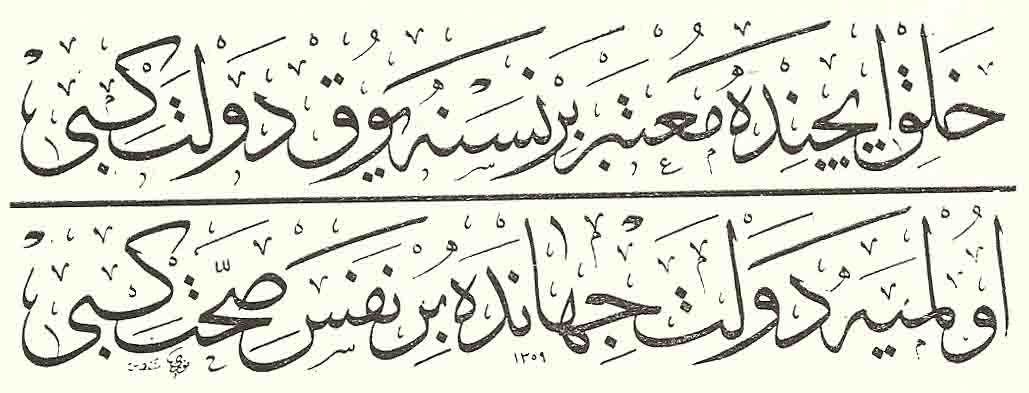 خلق ایچنده معتبر بر نسنه یوق دولت كبی
اولمیه دولت جهانده بر نفس صحّت كبی
١٣٥٩